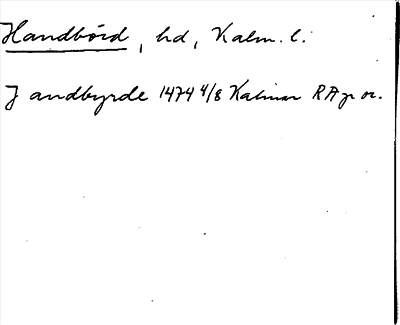 Handbörd, hd, Kalm. l.
J andbyrde 1474 4/8 Kalmar RAp or.